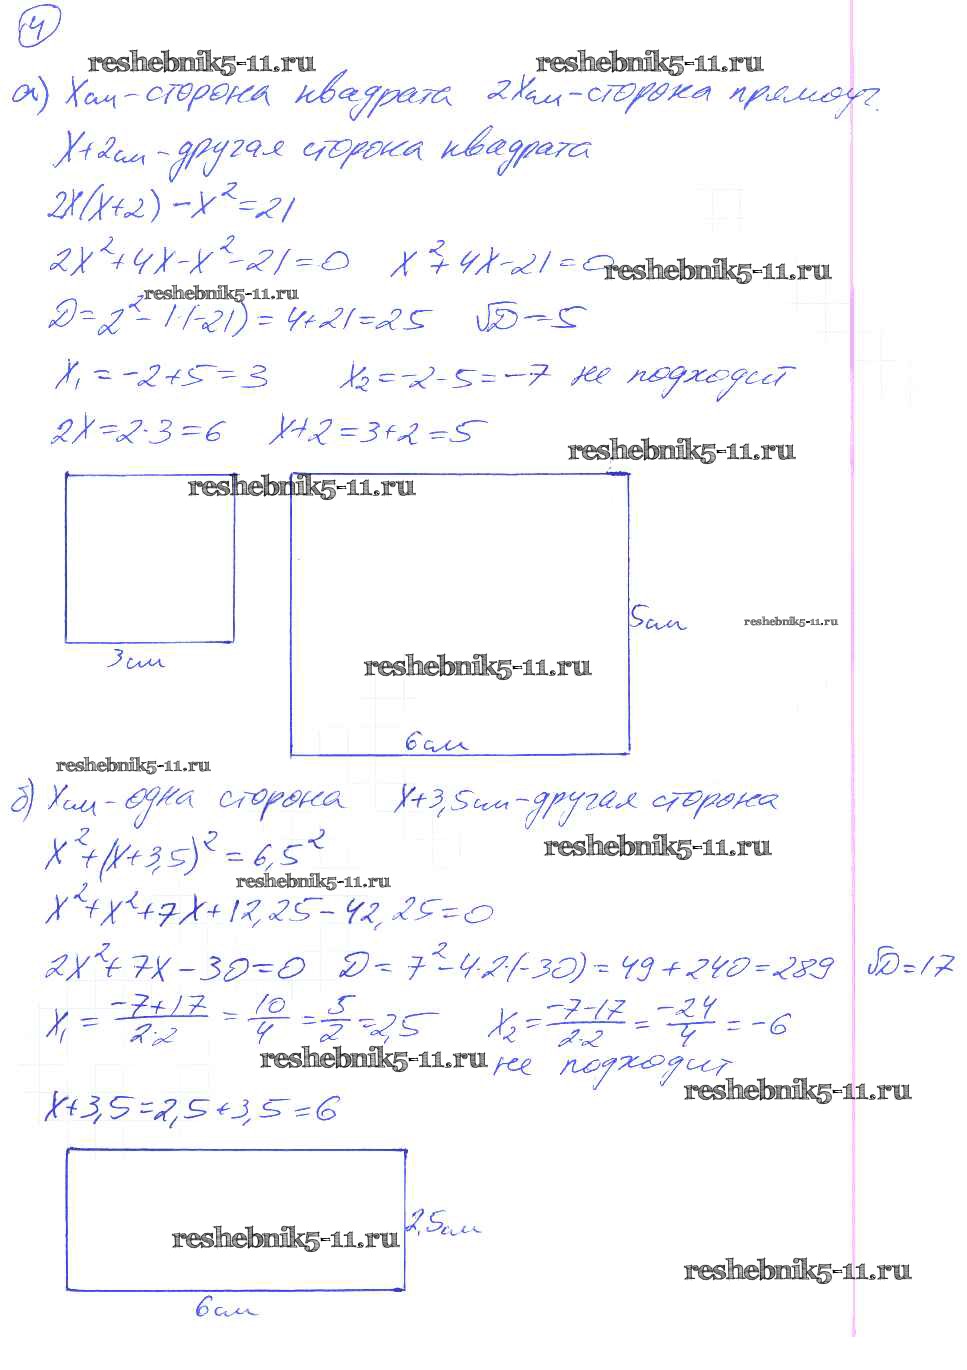 4
reshebnik5-11.ru reshebnik5-11.ru
а) Xсм-сторона квадрата 2Xсм-сторона прямоуг.
X+2см-другая сторона квадрата
2X(X+2)-X²=21
2X²+4X-X²-21=0 X²+4X-21=0
reshebnik5-11.ru
reshebnik5-11.ru
D=2²-1·(-21)=4+21=25 √D=5
X₁=-2+5=3 X₂=-2-5=-7 не подходит
2X=2·3=6 X+2=3+2=5
reshebnik5-11.ru
reshebnik5-11.ru
5см
reshebnik5-11.ru
3см
reshebnik5-11.ru
6см
reshebnik5-11.ru
б) Xсм-одна сторона X+3,5см-другая сторона
X²+(X+3,5)²=6,5²
reshebnik5-11.ru
reshebnik5-11.ru
X²+X²+7X+12,25-42,25=0
2X²+7X-30=0 D=7²-4·2·(-30)=49+240=289 √D=17
X₁=(-7+17)/(2·2)=10/4=5/2=2,5 X₂=(-7-17)/(2·2)=-24/4=-6
reshebnik5-11.ru не подходит
reshebnik5-11.ru
X+3,5=2,5+3,5=6
2,5см
reshebnik5-11.ru
reshebnik5-11.ru
6см